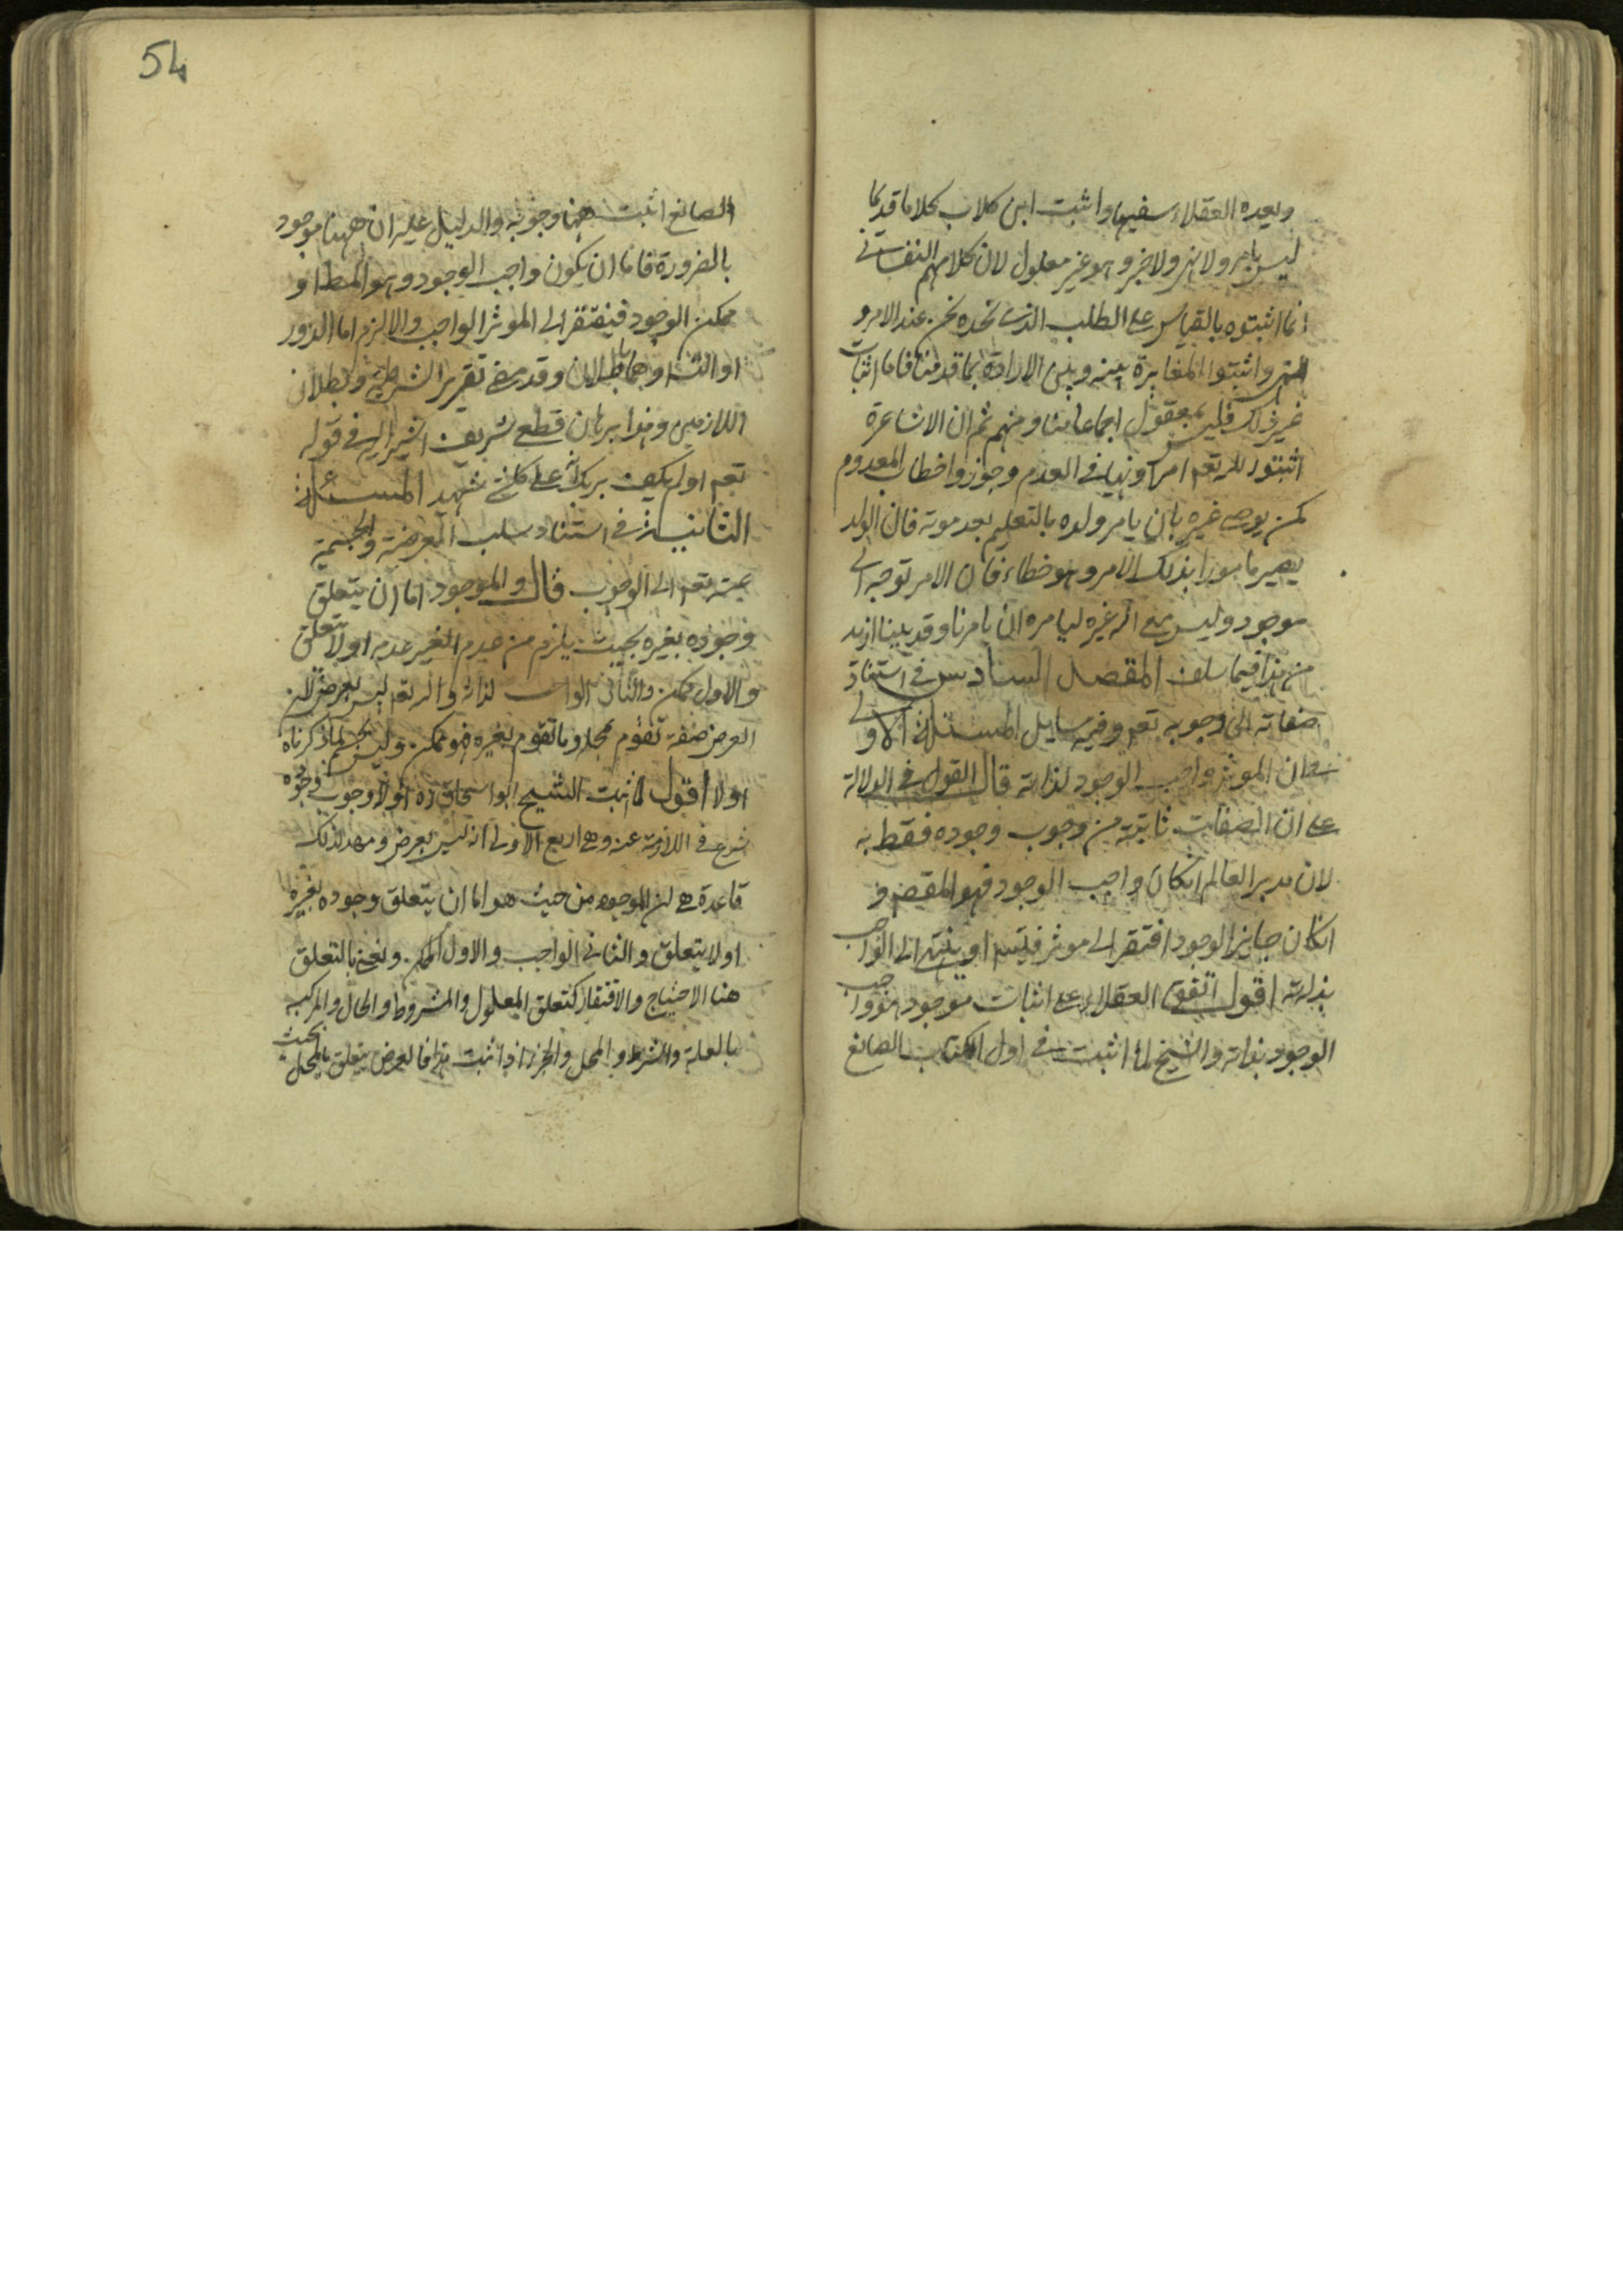 ويعده العقلاء سفيها واثبت ابن كلاب كلاما قديما
ليس بامر ولا نهي ولا خبر وهو غير معلول لان كلامهم النفساني
انما اثبتوه بالقياس على الطلب الذي نجده نحن عند الامر و
النهي واثبتوا المغايرة بينه وبين الارادة بما قدمنا فاما اثبات
غير ذلك فليس بمعقول اجماعا منا ومنهم ثم ان الاشاعرة
اثبتوا لله تعم امرا ونهيا في العدم وجوزوا خطاب المعدوم
كمن يوصي غيره بان يامر ولده بالتعليم بعد موته فان الولد
يصير مامورا بذلك الامر وهو خطاء فان الامر توجه الى
موجود وليس مع الله غيره ليامره ان يامرنا وقد بينا ازيد
من هذا فيما سلف المقصد السادس في استناد
صفاته الى وجوبه تعم وفيه مسايل المسئلة الاولى
في ان الموثر واجب الوجود لذاته قال القول في الدلالة
على ان الصفات ثابتة من وجوب وجوده فقط به
لان مدبر العالم ان كان واجب الوجود فهو المقصود
ان كان جايز الوجود افتقر الى موثر فيتسم او ينتهي الى الواجب
بذاته اقول اتفق العقلاء على اثبات موجود هو واجب
الوجود بذاته والشيخ لما اثبت في اول الكتاب الصانع
54
الصانع اثبت هنا وجوبه والدليل عليه ان ههنا موجود
بالضرورة فاما ان يكون واجب الوجود وهو المط او
ممكن الوجود فيفتقر الى الموثر الواجب والا لزم اما الدور
او التسلسل وهما باطلان وقد مضى تقرير الشرطية وبطلان
اللازمين وهذا برهان قطعي شريف اشير اليه في قوله
تعم اولم يكف بربك انه على كل شئ شهيد المسئلة
الثانية في استناد سلب العرضية والجسمية
عنه تعم الى الوجوب قال والموجود اما ان يتعلق
وجوده بغيره بحيث يلزم من عدم الغير عدمه او لا يتعلق
والاول ممكن والثاني الواجب لذاته والله تعم ليس بعرض لان
العرض صفة تقوم بمحل وما تقوم بغيره فهو ممكن وليس بجسم لما ذكرناه
اولا اقول لما اثبت الشيخ ابو اسحاق ره اولا وجوب وجوده
شرع في اللازمة عنه وهي اربع الاولى انه ليس بعرض ومهد لذلك
قاعدة هي ان الموجود من حيث هو اما ان يتعلق وجوده بغيره
او لا يتعلق والثاني الواجب والاول الممكن ونعني بالتعلق
هنا الاحتياج والافتقار كتعلق المعلول والمشروط والحال والمركب
بالعلة والشرط والمحل والجزء اذا ثبت هذا فالعرض يتعلق بالمحل بحيث